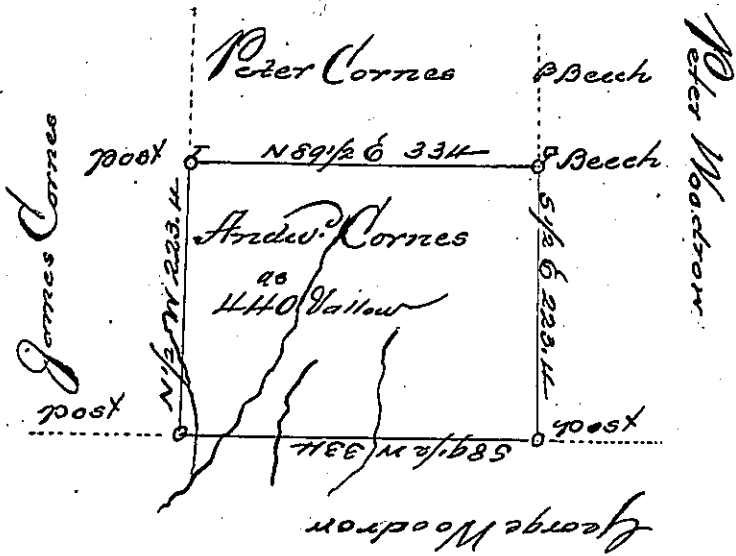 Peter Cornes
Beech
Peter Woodrow
post
N 89 1/2 E 334
Beech
James Cornes
N 1/2 W 223.4
Andw. Cornes
as
440 Vallow
S 1/2 E 223.4
post
S 89 1/2 W 334
post
George Woodrow